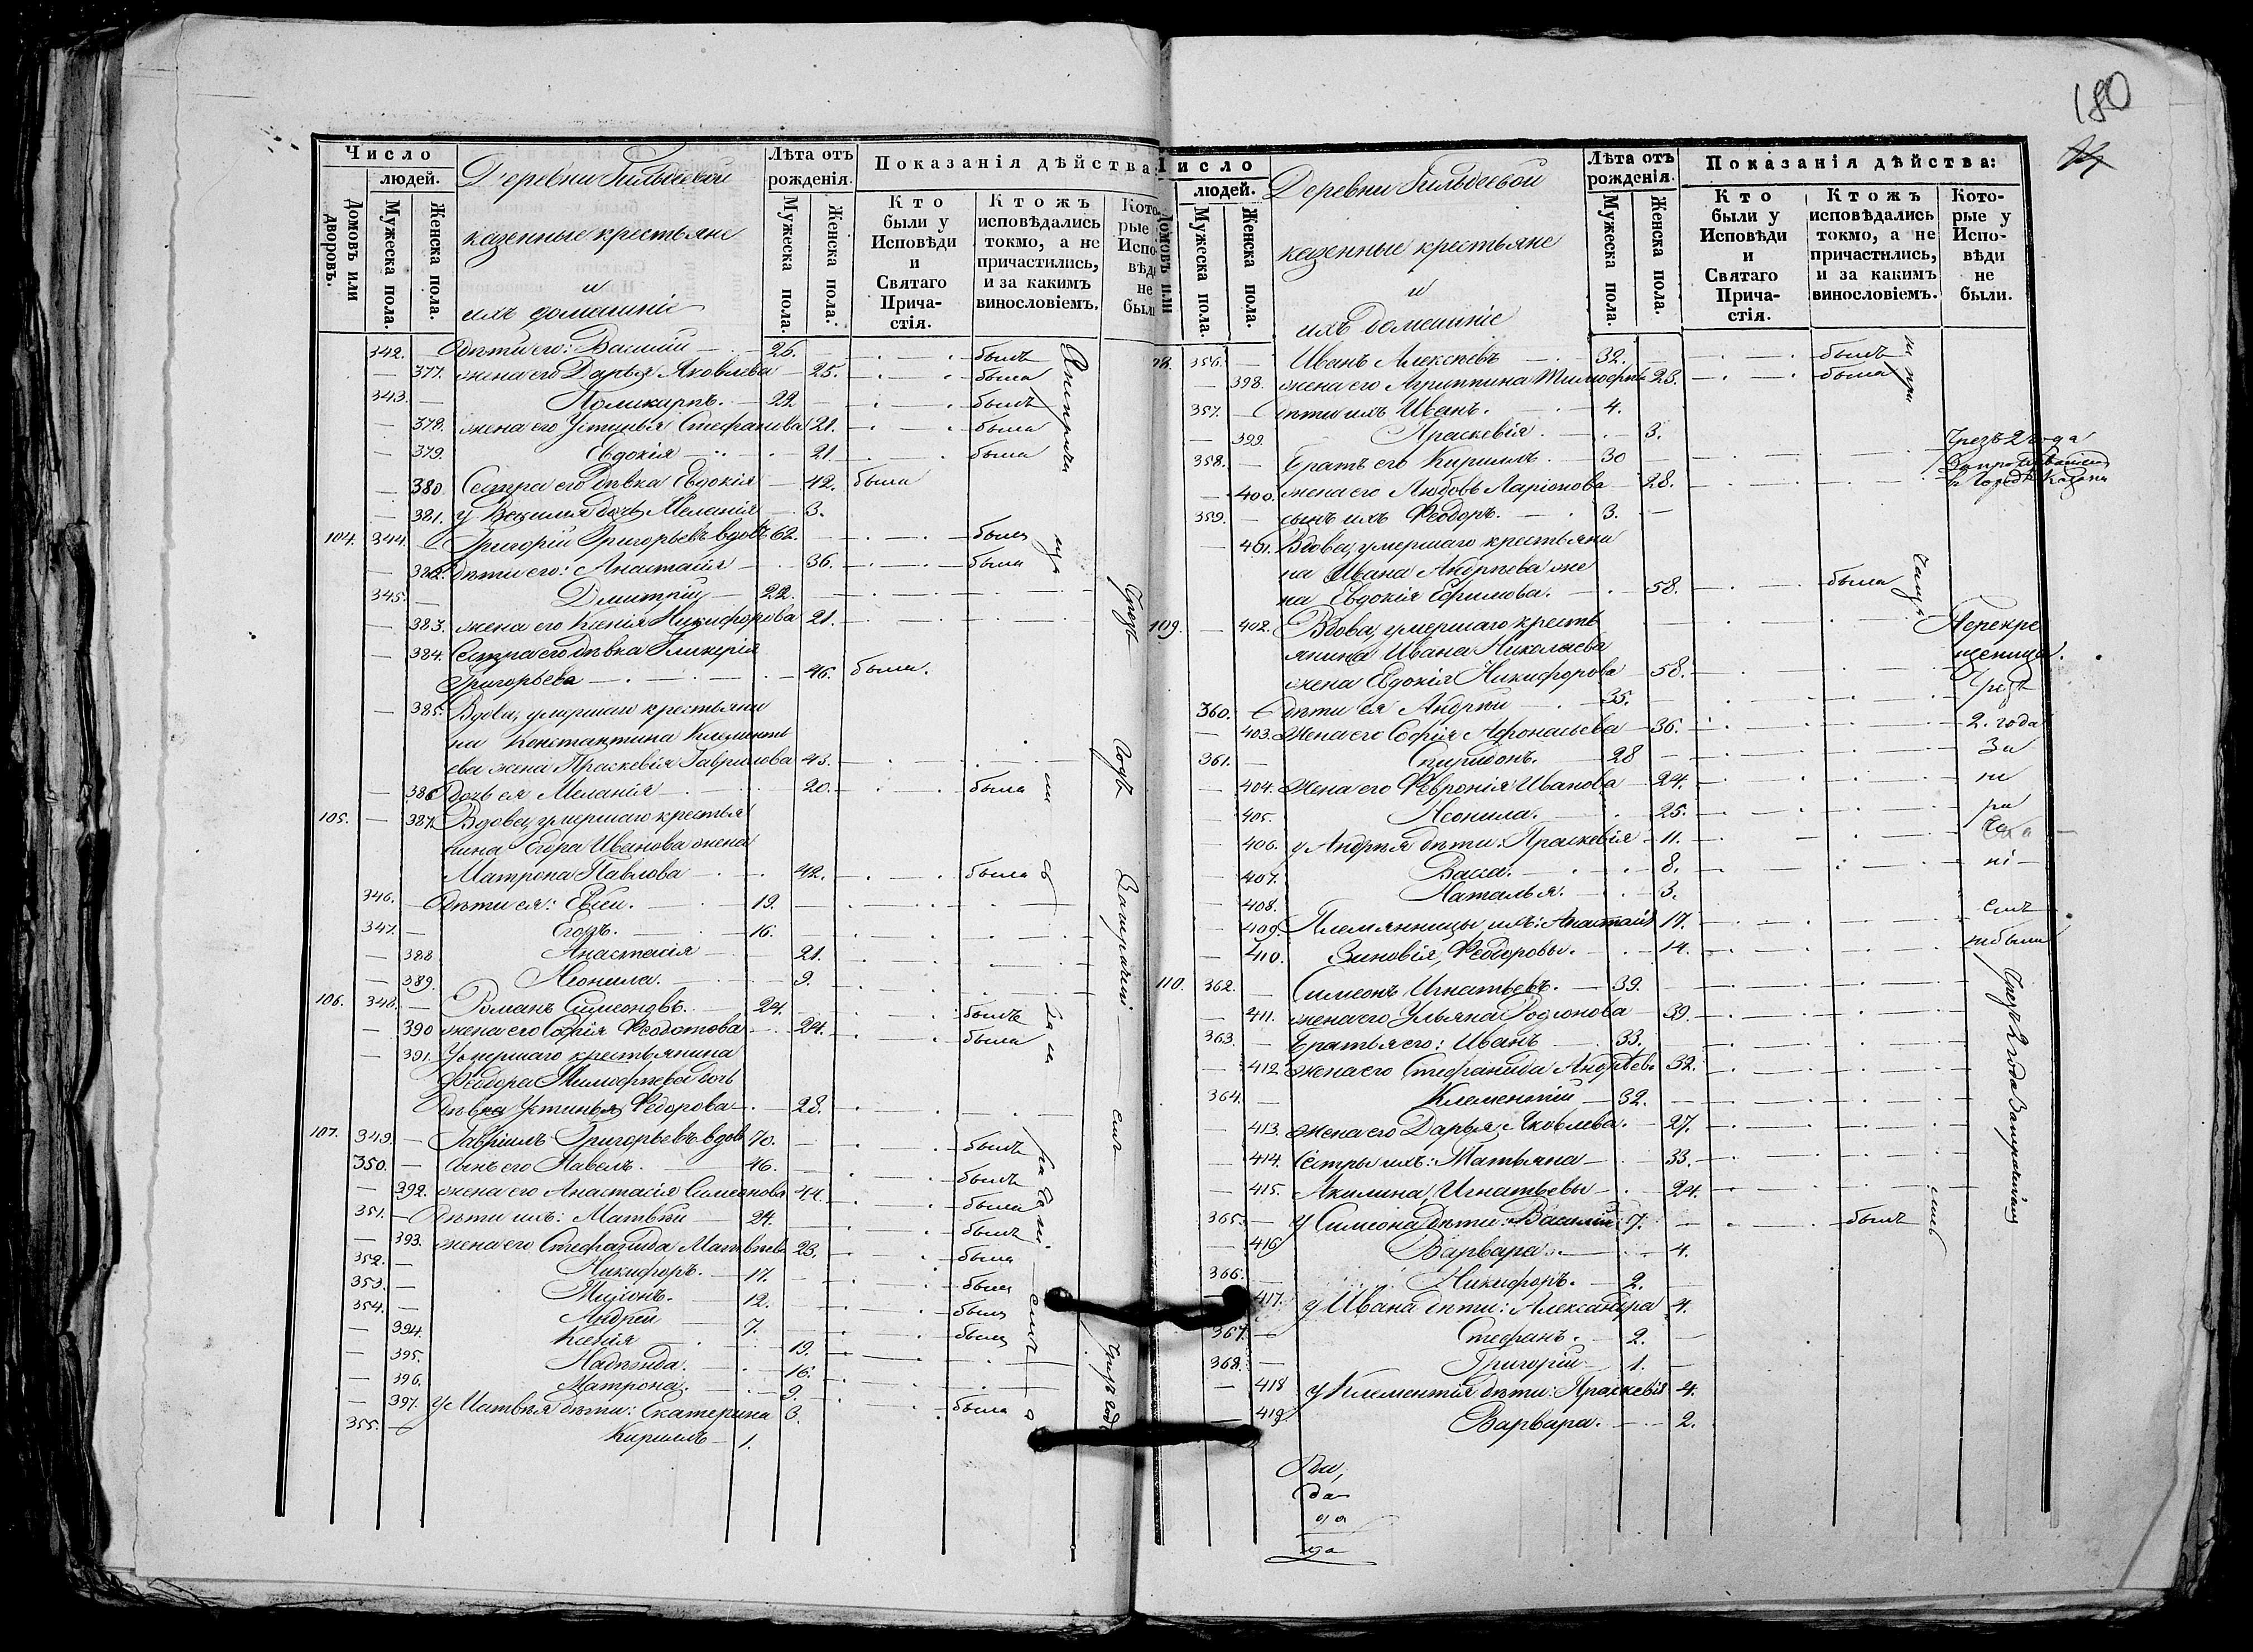 180
Число
людей.
Домовъ или дворовъ.
Мужеска пола.
Женска пола.
Деревни Кильдеевой
казенные крестьяне
и
ихъ домашніе
Лѣта отъ рожденія.
Мужеска пола.
Женска пола.
Показанія дѣйства:
Кто были у Исповѣди и Святаго Прича-стія.
Ктожъ исповѣдались токмо, а не причастились, и за какимъ винословіемъ.
Кото-рые у Испо-вѣди не были.
342. — дѣти его: Василій — 26. былъ
— 377. жена его Дарья Яковлева — 25. была
343. — Поликарпъ. — 22 — былъ
— 378. жена его Устинья Стефанова 21. была
— 379. Евдокія — 21. была
— 380 Сестра его дѣвка Евдокія — 42. была
— 381. у Василья дочь Меланія — 3.
104. 344. Григорій Григорьевъ вдовъ 62. — былъ
— 382. дѣти его: Анастасія — 36. была
345. — Дмитрій — 22.
— 383. жена его Ксенія Никифорова 21.
— 384. Сестра его дѣвка Гликерія
Григорьева — 46. была.
— 385. Вдова, умершаго крестьяни
на Константина Клементь
ева жена Праскевія Гаврилова 43.
— 386 дочь ея Меланія — 20. была
105. — 387. Вдова, умершаго крестья
нина Егора Иванова жена
Матрена Павлова — 42. была
346. — дѣти ея: Евсей. — 19.
347. — Егоръ. — 16.
— 388. Анастасія — 21.
— 389. Неонила. — 9.
106. 348. — Романъ Симеоновъ. 24. былъ
— 390 жена его Софія Ѳеодотова — 24. была
— 391. Умершаго крестьянина
Ѳеодора Тимофѣева дочь
дѣвка Устинья Ѳедорова — 28.
107. 349. — Гавріилъ Григорьевъ вдов 70. — былъ
350. — сынъ его Павелъ. — 46. — былъ
— 392. жена его Анастасія Симеонова 44. была
351. — дѣти ихъ: Матвѣй — 24. — былъ
— 393. жена его Стефанида Матвѣева 23. была
352. — Никифоръ. — 17. — былъ
353. — 12. былъ
354. — Андрей — 7. былъ
— 394. Ксенія — 19.
— 395. Надежда. — 16.
— 396. Матрона. — 9.
— 397. у Матвѣя дѣти: Екатерина 3. была
355. — Кириллъ — 1.
Чрезъ годъ
Число
людей.
Домовъ или
Мужеска пола.
Женска пола.
Деревни Кильдеевой
казенные крестьяне
и
ихъ домашніе
Лѣта отъ рожденія.
Мужеска пола.
Женска пола.
Показанія дѣйства:
Кто были у Исповѣди и Святаго Прича-стія.
Ктожъ исповѣдались токмо, а не причастились, и за какимъ винословіемъ.
Кото-рые у Испо-вѣди не были.
356. — Иванъ Алексѣевъ — 32. — былъ
— 398. жена его Агриппина Тимофѣева 23. была
357. — дѣти ихъ Иванъ. — 4.
— 399. Праскевія. — 3.
358. — Братъ его Кириллъ. — 30 Чрезъ 2 года
— 400. жена его Любовь Ларіонова — 28.
359. — сынъ ихъ Ѳеодоръ. — 3. —
— 401. Вдова, умершаго крестьяни
на Ивана Андрѣева же
на Евдокія Ефимова. — 58. была
109. — 402. Вдова, умершаго кресть
янина Ивана Николаева
жена Евдокія Никифорова — 58.
360. — дѣти ея Андрей — 35.
— 403. Жена его Софія Афонасьева — 36. 2. года
361. — Спиридонъ. — 28 — За
— 404. Жена его Ѳевронія Иванова — 24.
— 405. Неонила. — 25.
— 406. у Андрея дѣти: Праскевія — 11.
— 407. Васса. — 8.
— 408. Наталья. — 3.
— 409. Племянницы ихъ: Анастасія 17.
— 410. Зиновія, Ѳедоровы. — 14.
110. 362. — Симеонъ Игнатьевъ. — 39.
— 411. жена его Ульяна Родіонова — 39.
363. — Братья его: Иванъ — 33.
— 412. жена его Стефанида Андреева 32.
364. — Клементій — 32.
— 413. Жена его Дарья Яковлева. — 27.
— 414. Сестры ихъ: Татьяна — 33.
— 415. Акилина, Игнатьевы — 24.
365. — у Симеона дѣти: Василій 7. — былъ
— 416 Варвара. — 4.
366. — Никифоръ. — 2. —
417. у Ивана дѣти: Александра 4.
367. — Стефанъ. — 2. —
368. — Григорій — 1. —
— 418 у Клементія дѣти: Праскевія 4.
— 419 Варвара. — 2.
Чрезъ 2 года